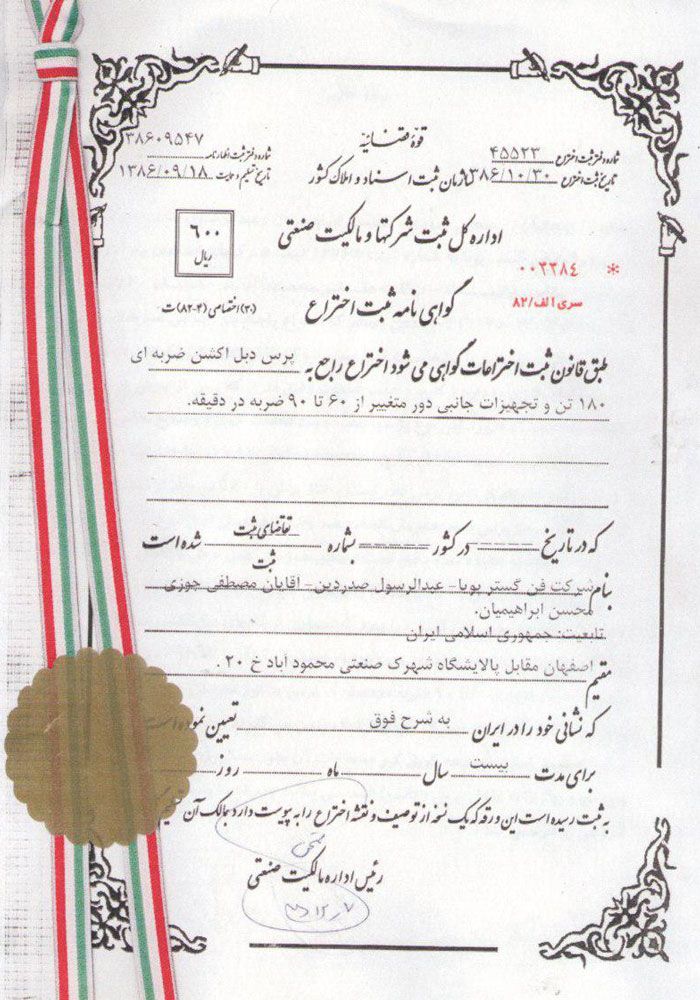 قوه قضائیه
شماره دفتر ثبت اختراع ۴۵۵۲۳
شماره دفتر ثبت اظهارنامه ۳۸۶۰۹۵۴۷
سازمان ثبت اسناد و املاک کشور
تاریخ ثبت اختراع ۱۳۸۶/۱۰/۳۰
تاریخ تسلیم و حمایت ۱۳۸۶/۰۹/۱۸
اداره کل ثبت شرکتها و مالکیت صنعتی
۶۰۰
ریال
* ۰۰۲۲۸۴
سری الف/۸۲
گواهی نامه ثبت اختراع
(۳۰) اختصاصی (۴-۸۲) ت
طبق قانون ثبت اختراعات گواهی می شود اختراع راجع به پرس دبل اکشن ضربه ای
۱۸۰ تن و تجهیزات جانبی دور متغییر از ۶۰ تا ۹۰ ضربه در دقیقه.
که در تاریخ ------ در کشور ------ بشماره تقاضای ثبت شده است
ثبت
بنام شرکت فن گستر پویا- عبدالرسول صدردین- آقایان مصطفی جوزی
محسن ابراهیمیان.
تابعیت: جمهوری اسلامی ایران
مقیم اصفهان مقابل پالایشگاه شهرک صنعتی محمود آباد خ ۲۰ .
که نشانی خود را در ایران به شرح فوق تعیین نموده است
برای مدت بیست سال -- ماه -- روز
به ثبت رسیده است این ورقه که یک نسخه از توصیف و نقشه اختراع را به پیوست دارد بمالک آن
رئیس اداره مالکیت صنعتی